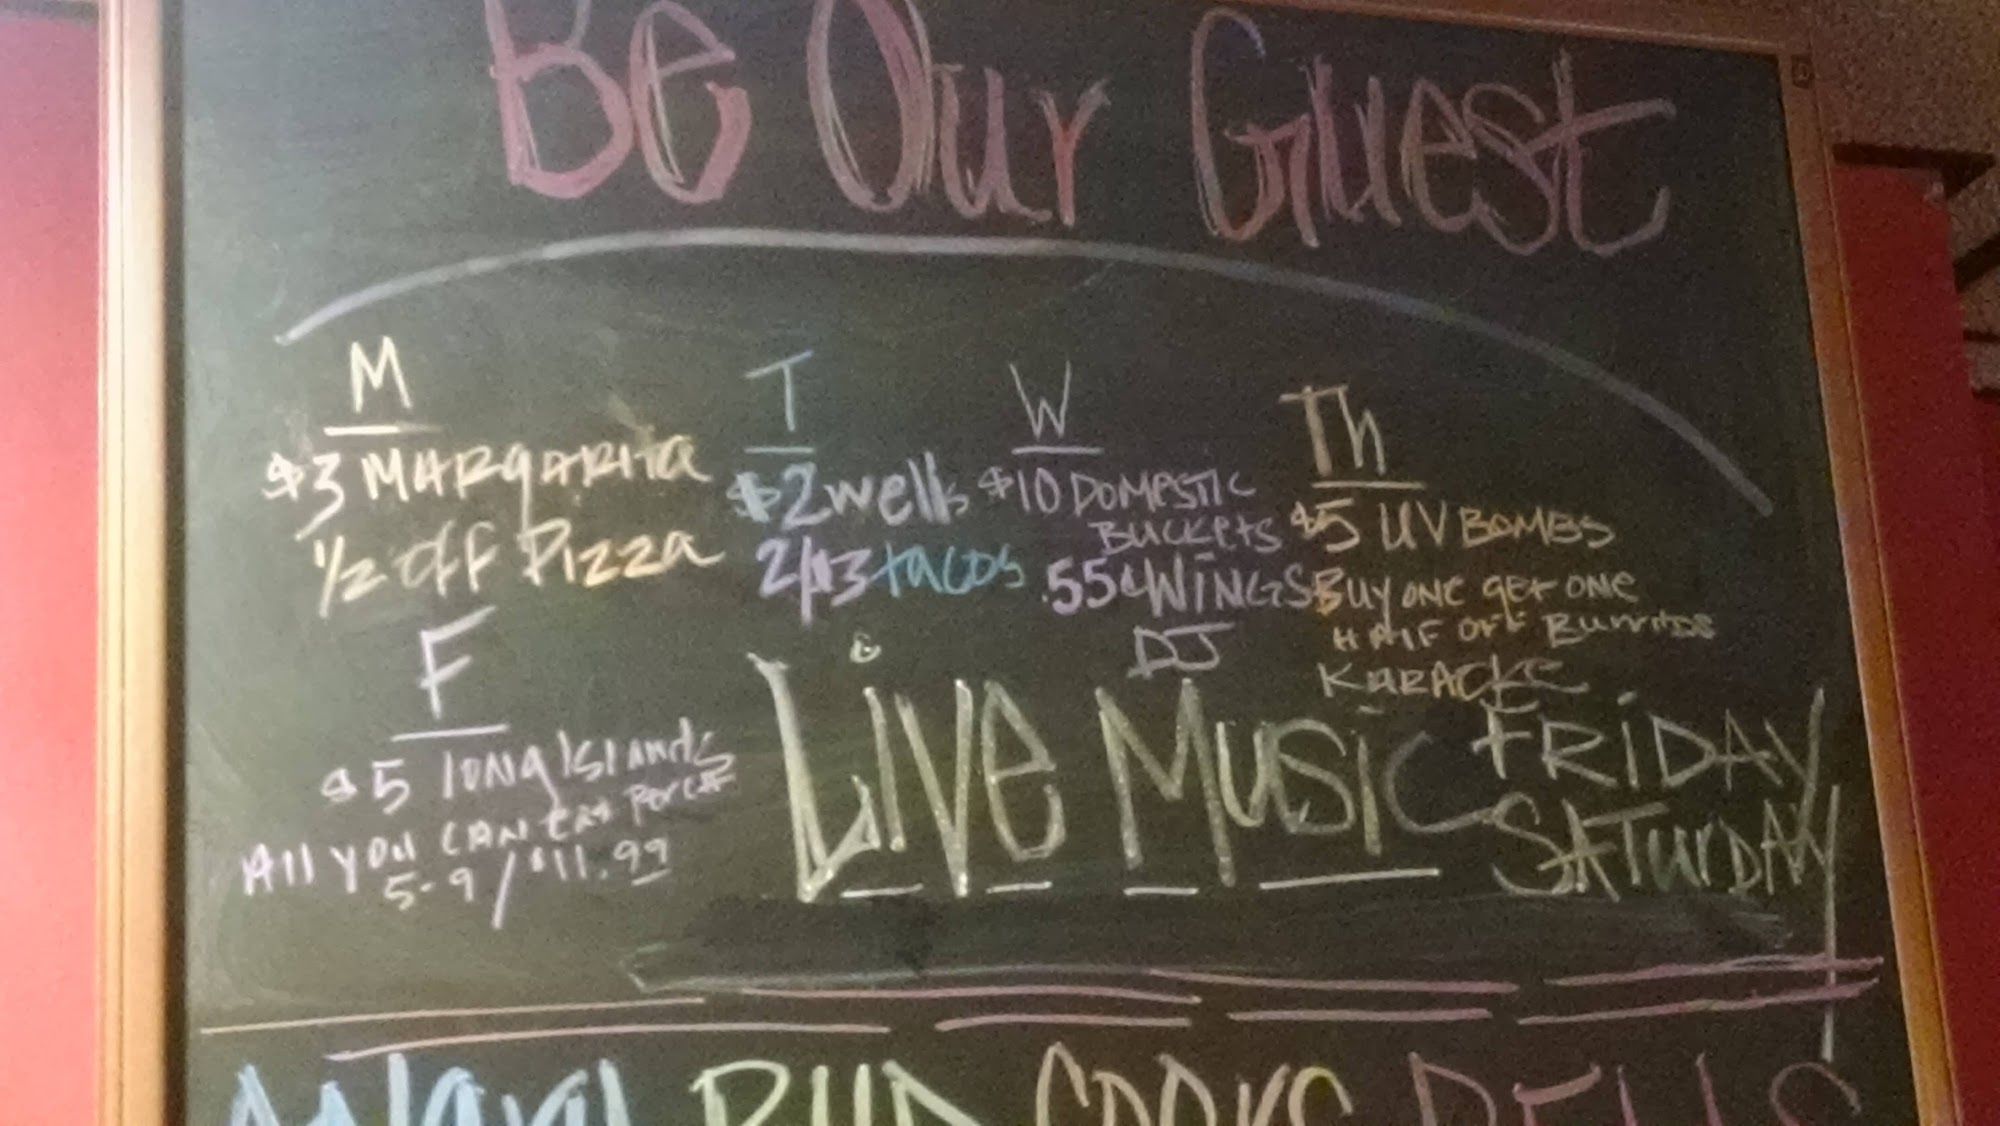 Be Our Guest
M
$3 MARgARita
1/2 off Pizza
T
$2 wells
2/$3 tacos
W
$10 DOMESTIC
BUCKETS
.55¢ WINGS
DJ
Th
$5 UV BOMBS
Buy ONE get ONE
HAlF OFF Burritos
KARAOKE
F
$5 long Islands
All you CAN EAt Perch
5-9/$11.99
LiVe Music
FRiDAY
SATurDAY
BUD COORS BELLS